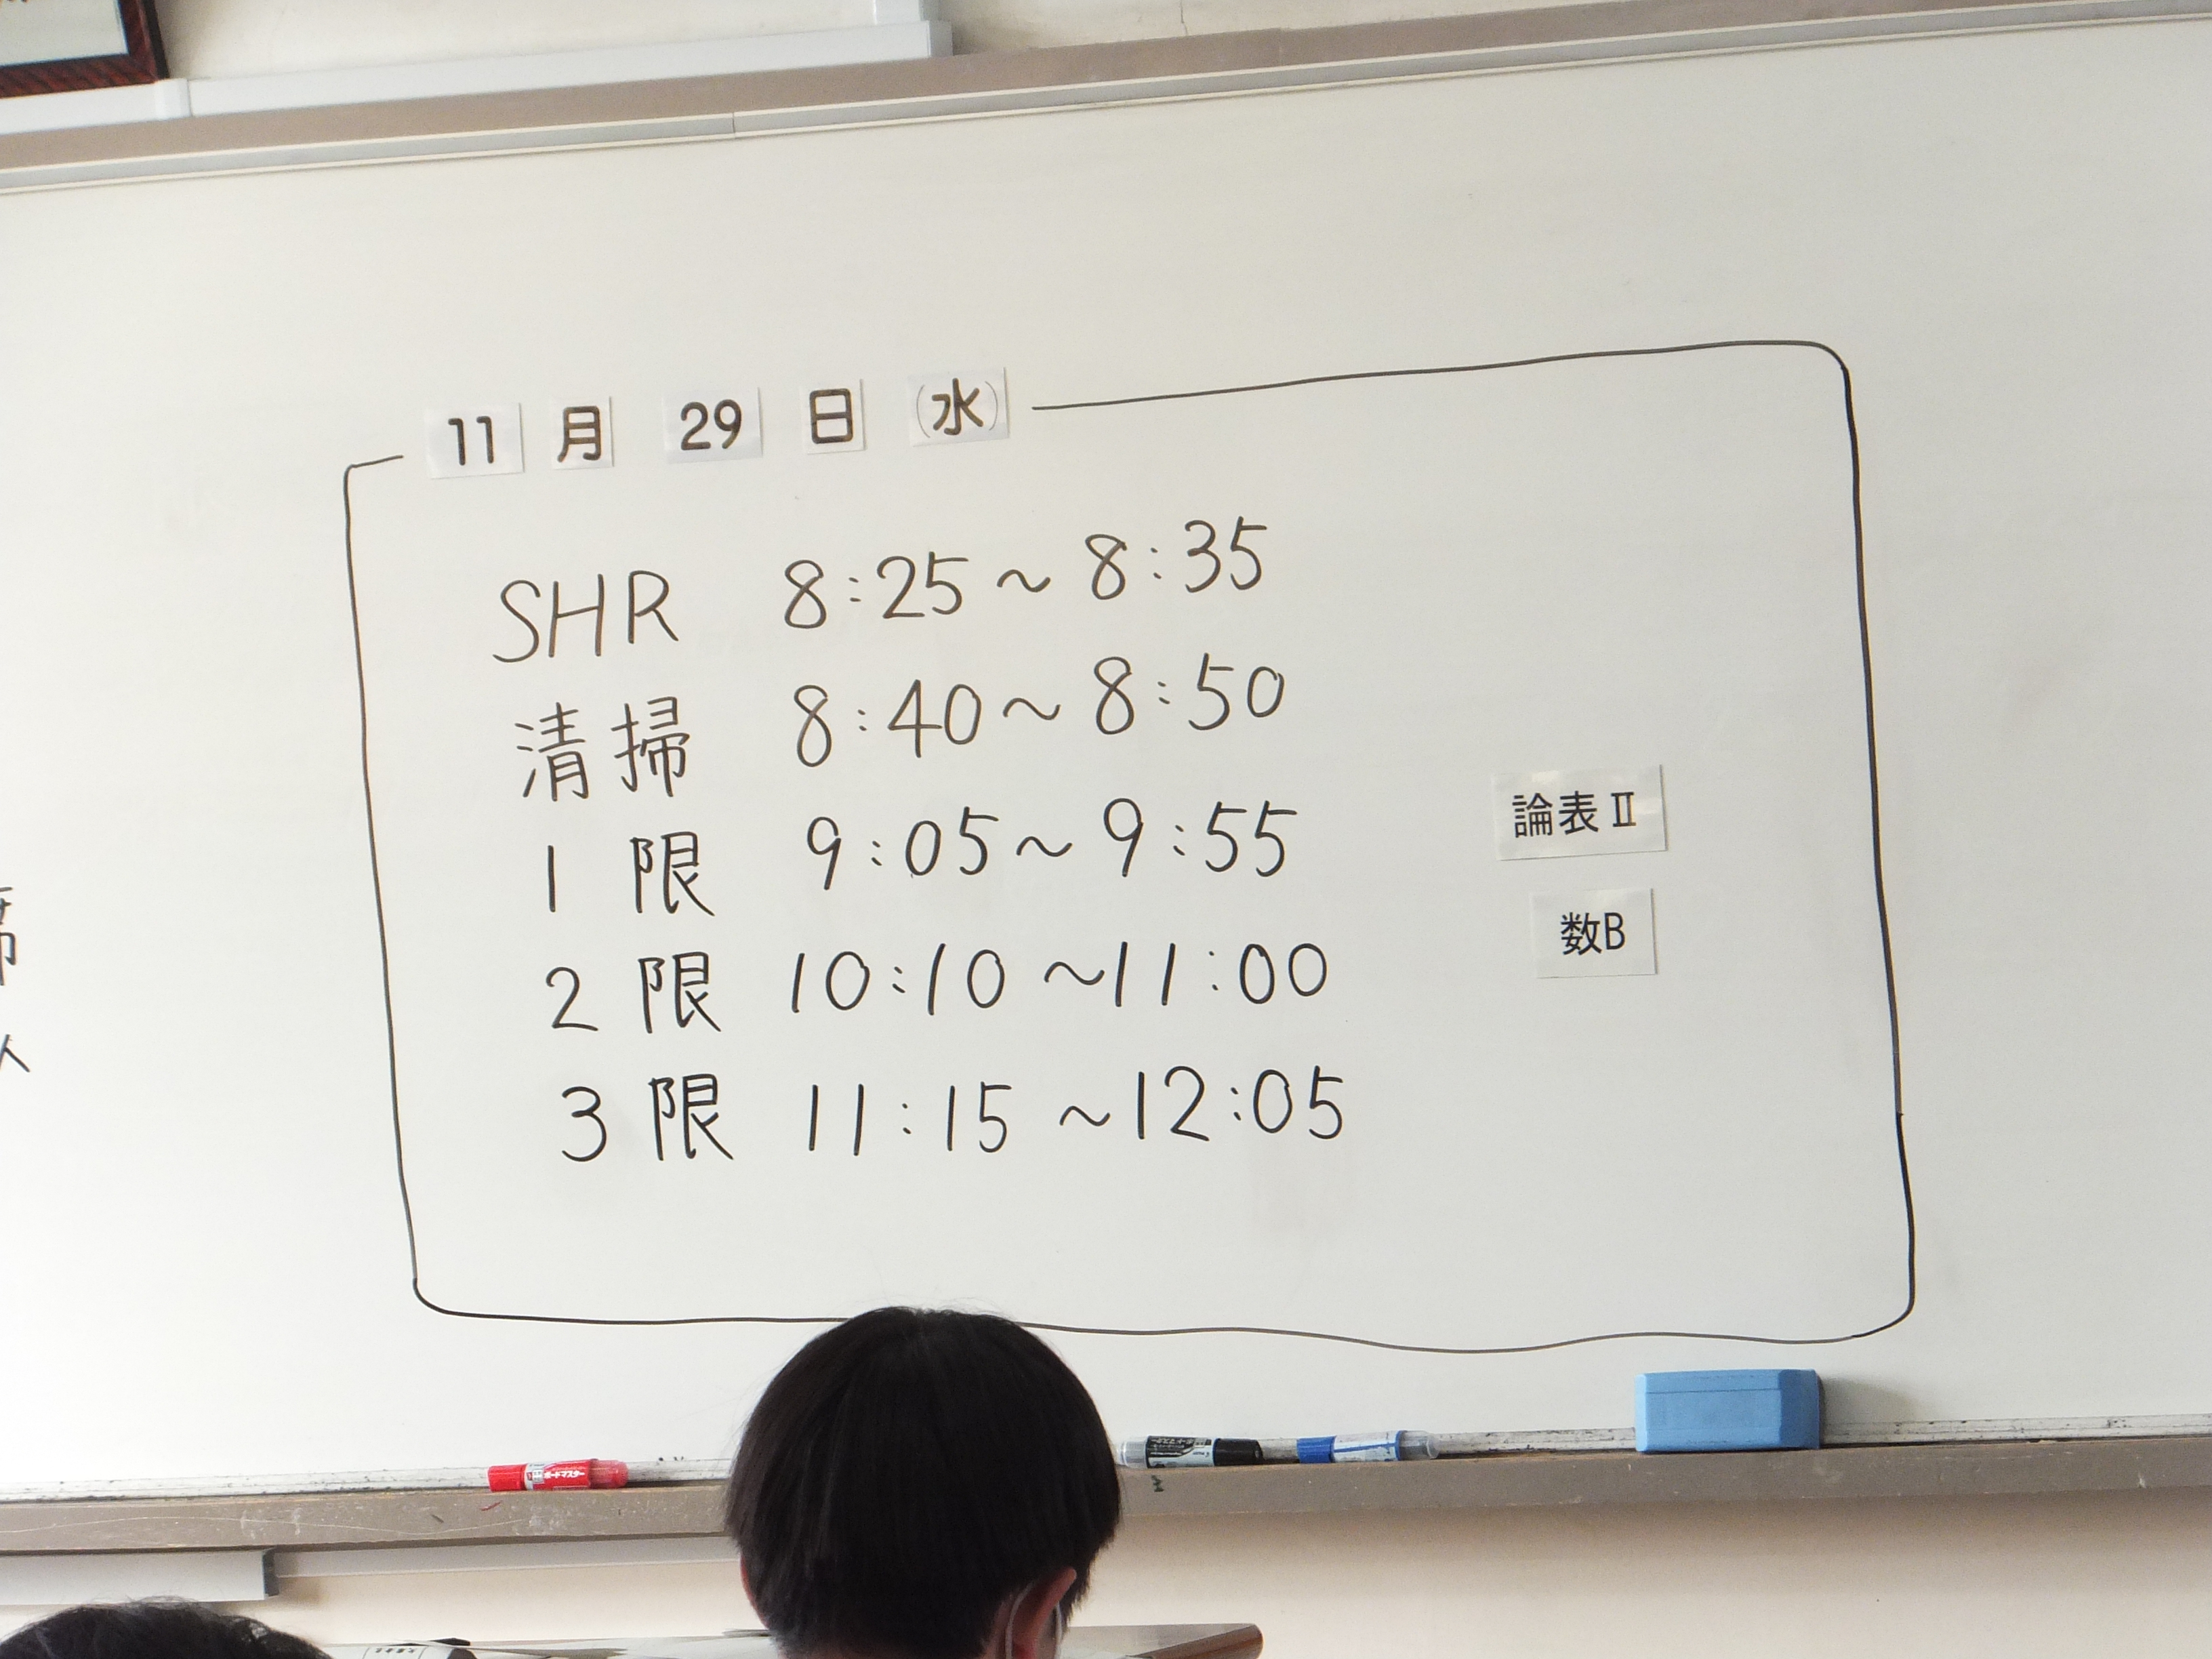 11 月 29 日 (水)
SHR 8:25～8:35
清掃 8:40～8:50
1 限 9:05～9:55 論表Ⅱ
2 限 10:10～11:00 数B
3 限 11:15～12:05
ボードマスター